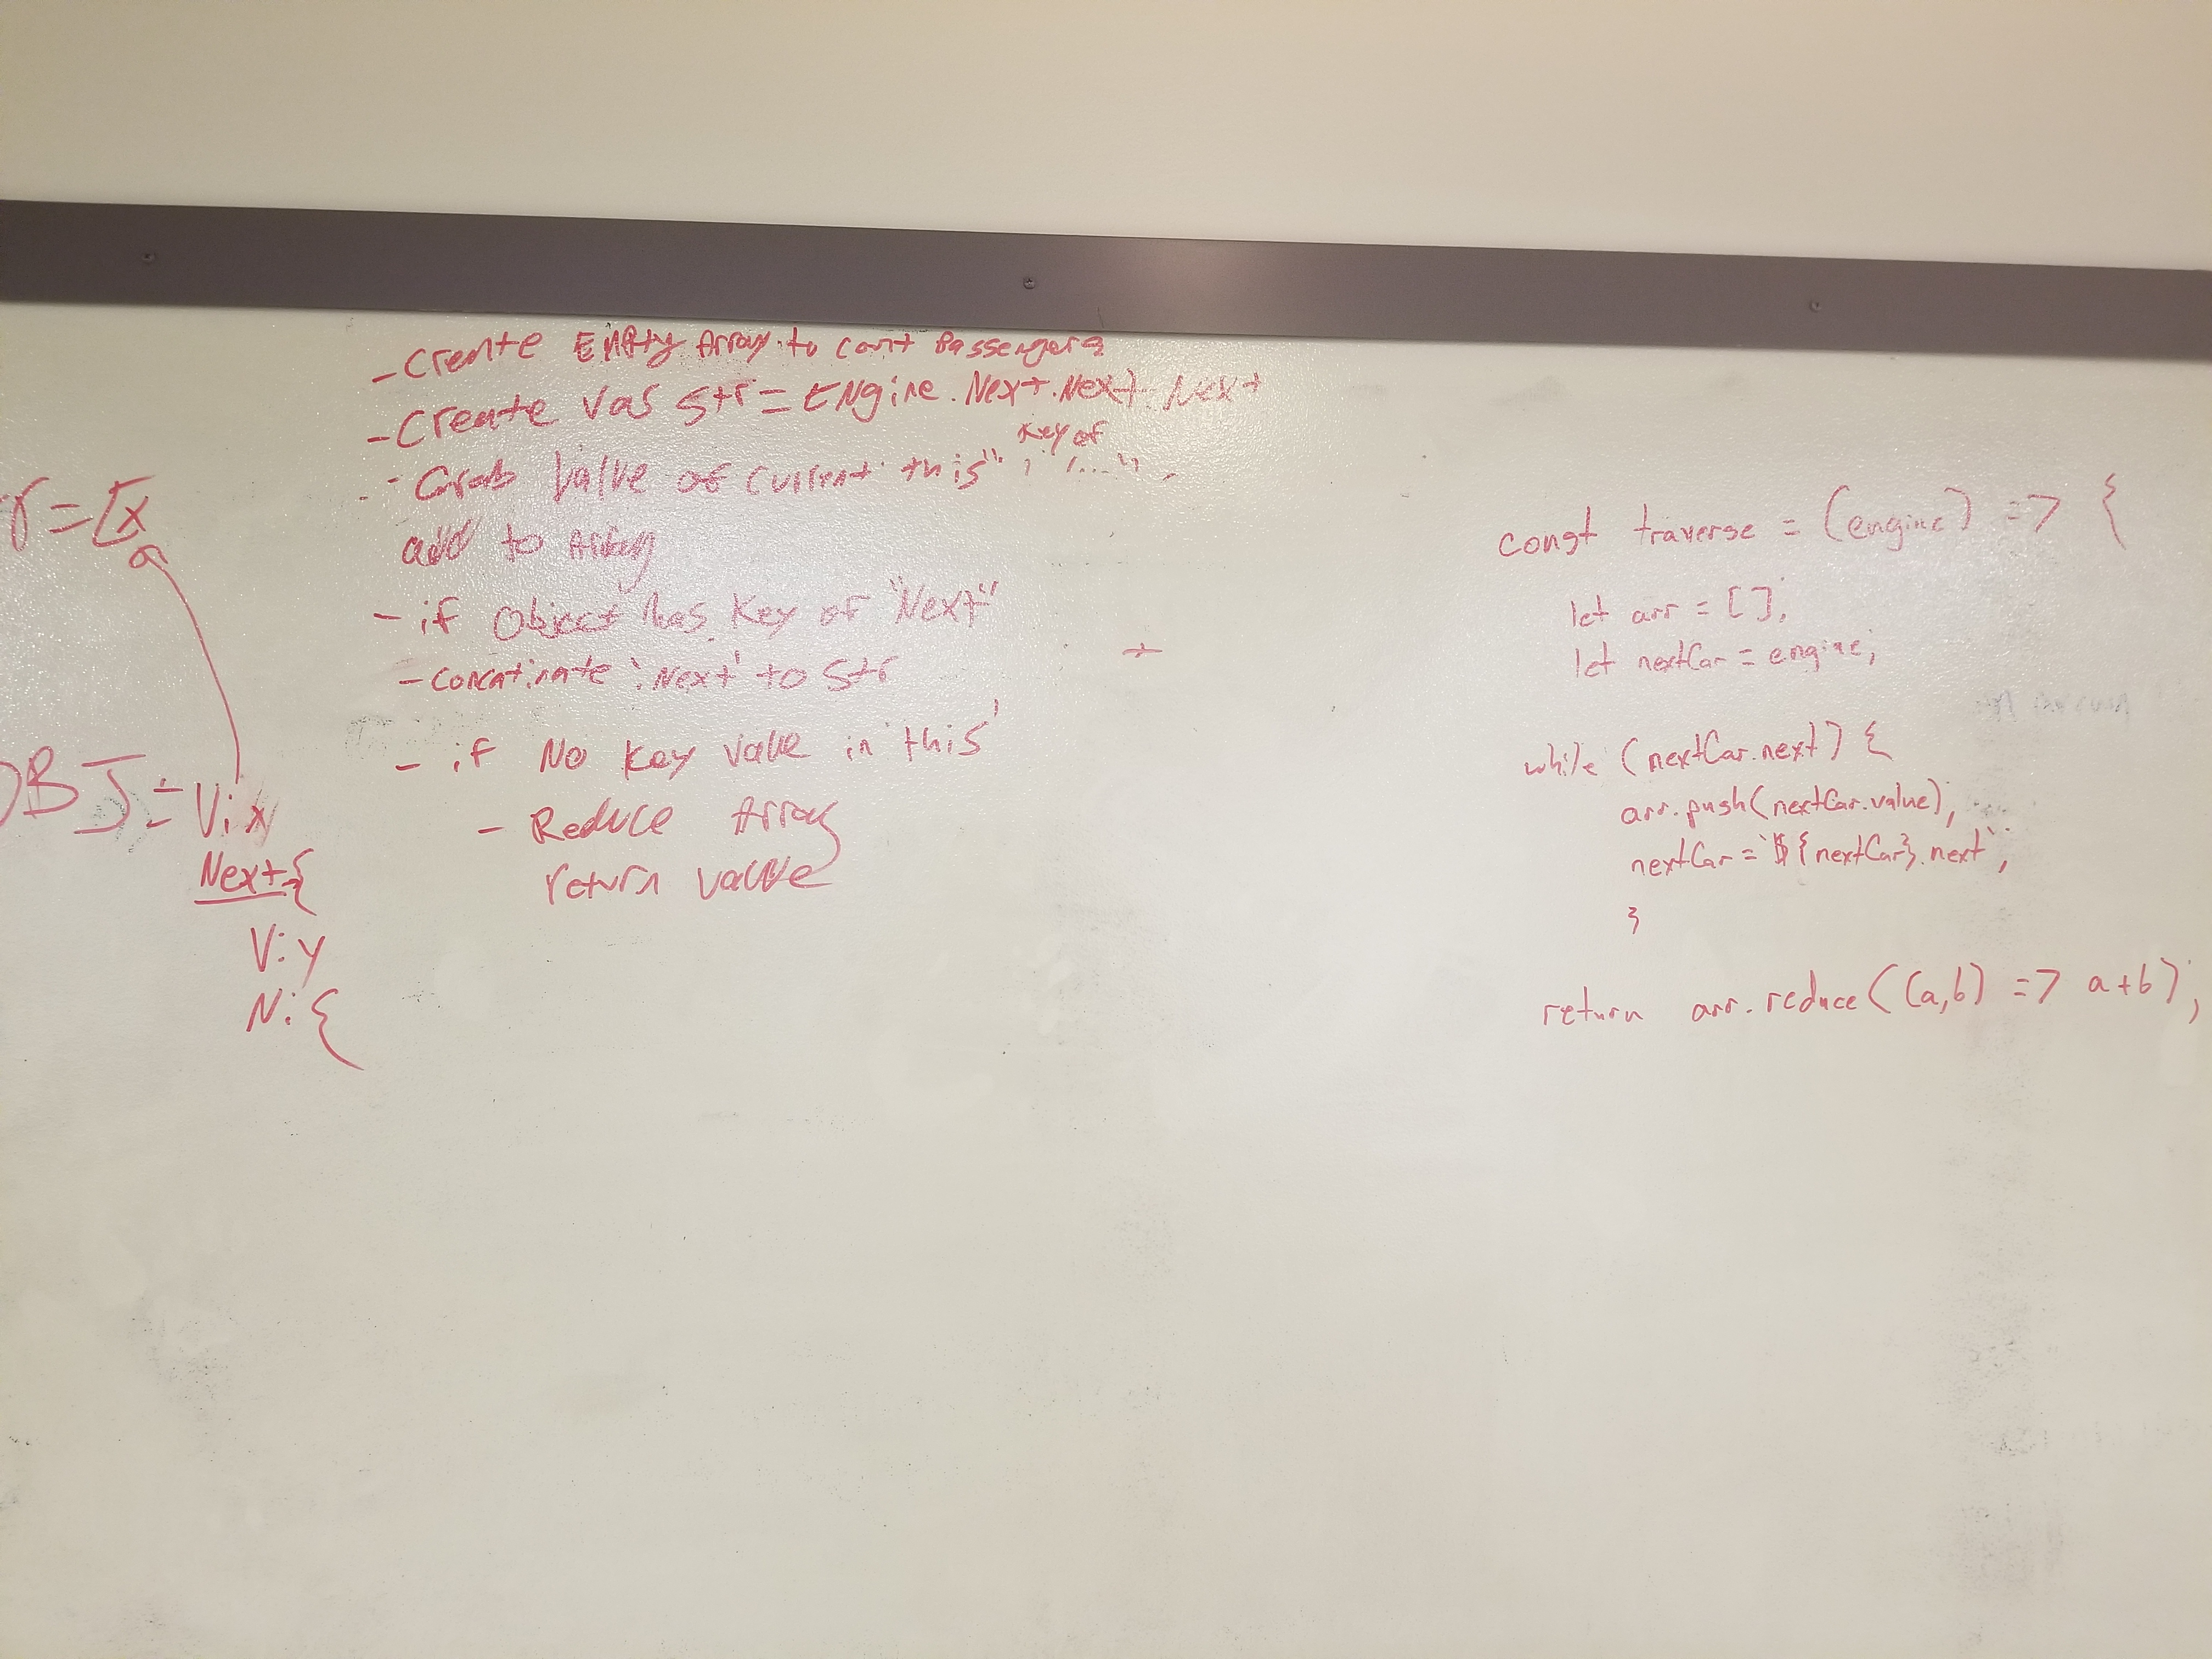 - Create Empty Array to count Passengers
- Create Var str = Engine.Next.Next.Next
Key of
- Grab Value of current "this"
add to Array
- if Object has Key of "Next"
- Concatinate 'Next' to str
- if No Key Value in 'this'
- Reduce Array
return value
r = [x
OBJ = V: x
Next {
V: y
N: {
const traverse = (engine) => {
let arr = [];
let nextCar = engine;
while (nextCar.next) {
arr.push(nextCar.value);
nextCar = `${nextCar}.next`;
}
return arr.reduce((a,b) => a+b);